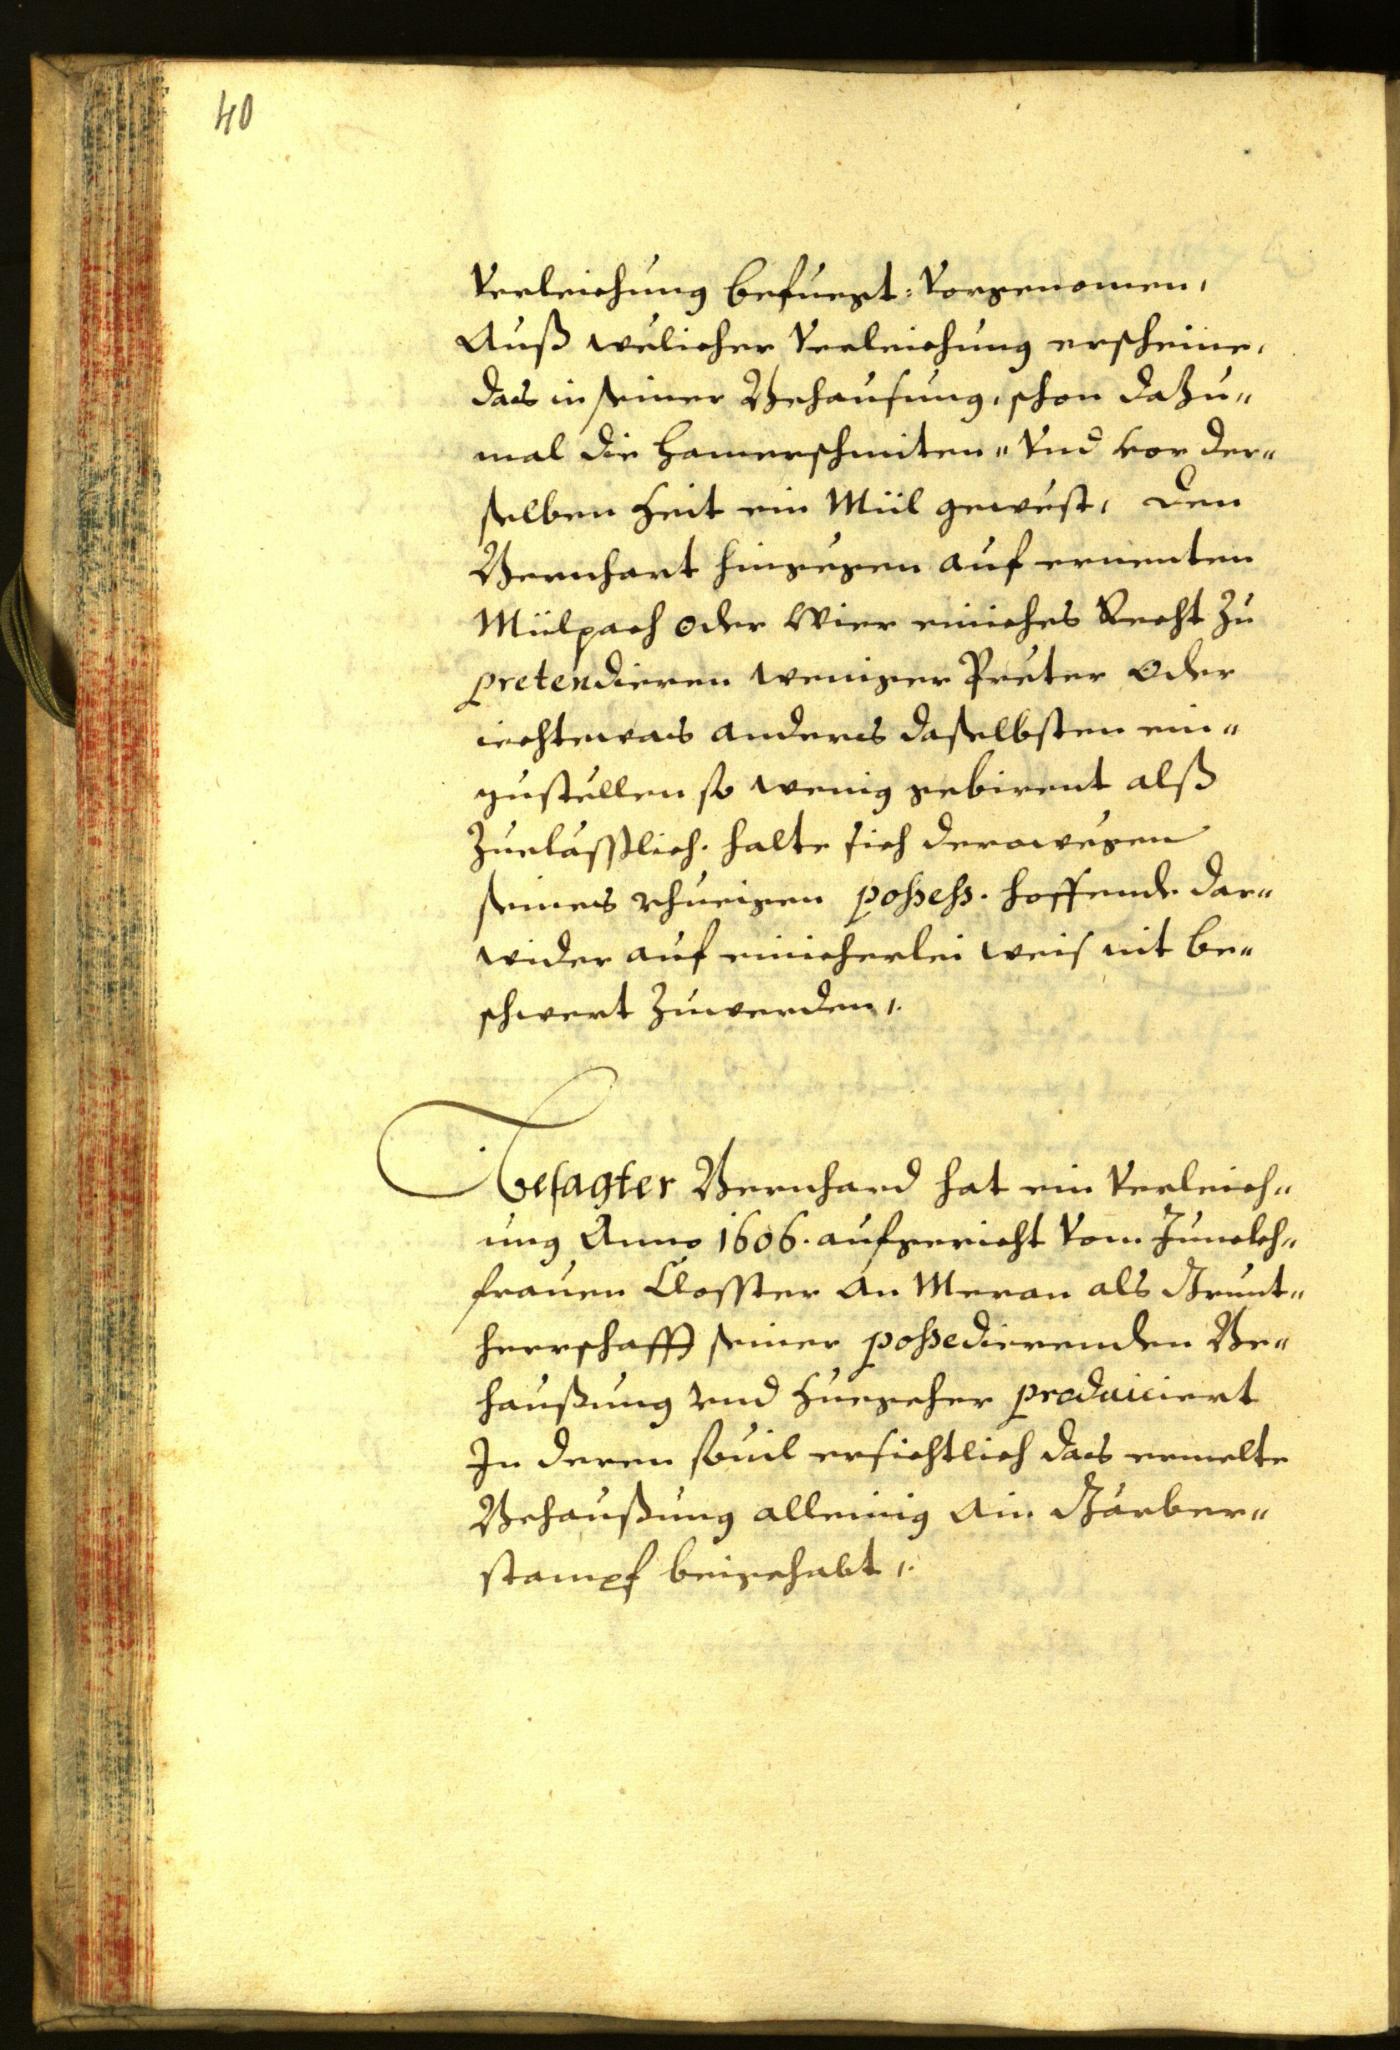 40
Verleichung befuegt: Vorgenomen,
Auß welicher Verleichung erscheine,
das in seiner Behausung, schon dazu„
mal die Hamerschmiten„ Vnd vor der„
selben Zeit ein Mül gewest, den
Bernhart hingegen auf ernenten
Mülpach oder Wier einiches Recht zu
pretendieren weniger Preter oder
ichtewas anders daselbsten ein„
zustellen so wenig gebirent alß
Zuelässlich. halte sich derowegen
seines rhueigen possess. hoffende dar„
wider auf einicherlei weis nit be„
schwert zuwerden,.
Besagter Bernhard hat ein Verleich„
ung Anno 1606. aufgericht Vom Junckh„
frauen Closster an Meran als Grunt„
herrschafft seiner possedierenden Be„
haußung vnd Zuegeher produciert
In deren souil ersichtlich das ermelte
Behaußung alleinig ain Gärber„
stampf beigehabt,.